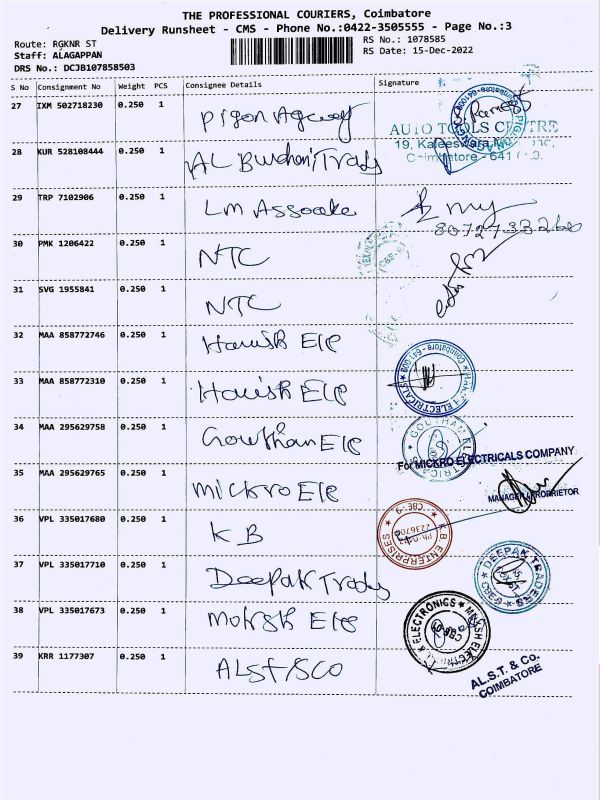 THE PROFESSIONAL COURIERS, Coimbatore
Delivery Runsheet - CMS - Phone No.:0422-3505555 - Page No.:3
Route: RGKNR ST
Staff: ALAGAPPAN
DRS No.: DCJB107858503
RS No.: 1078585
RS Date: 15-Dec-2022
S No Consignment No Weight PCS Consignee Details Signature
27 IXM 502718230 0.250 1
AUTO TOOLS CENTRE
28 KUR 528108444 0.250 1 AL
19, Kaleeswara
Coimbatore - 641
29 TRP 7102906 0.250 1 LM
30 PMK 1206422 0.250 1 NTC
31 SVG 1955841 0.250 1 NTC
32 MAA 858772746 0.250 1 Harish Ele
33 MAA 858772310 0.250 1 Harish Ele
34 MAA 295629758 0.250 1 Gowthan Ele
For MICKRO ELECTRICALS COMPANY
35 MAA 295629765 0.250 1 Mickro Ele
MANAGER / PROPRIETOR
36 VPL 335017680 0.250 1 KB
B. ENTERPRISES CBE-9
37 VPL 335017710 0.250 1 Deepak Trady
DEEPAK TRADERS
38 VPL 335017673 0.250 1 Moksh Ele
39 KRR 1177307 0.250 1 ALST/SCO
AL.S.T. & Co.
COIMBATORE